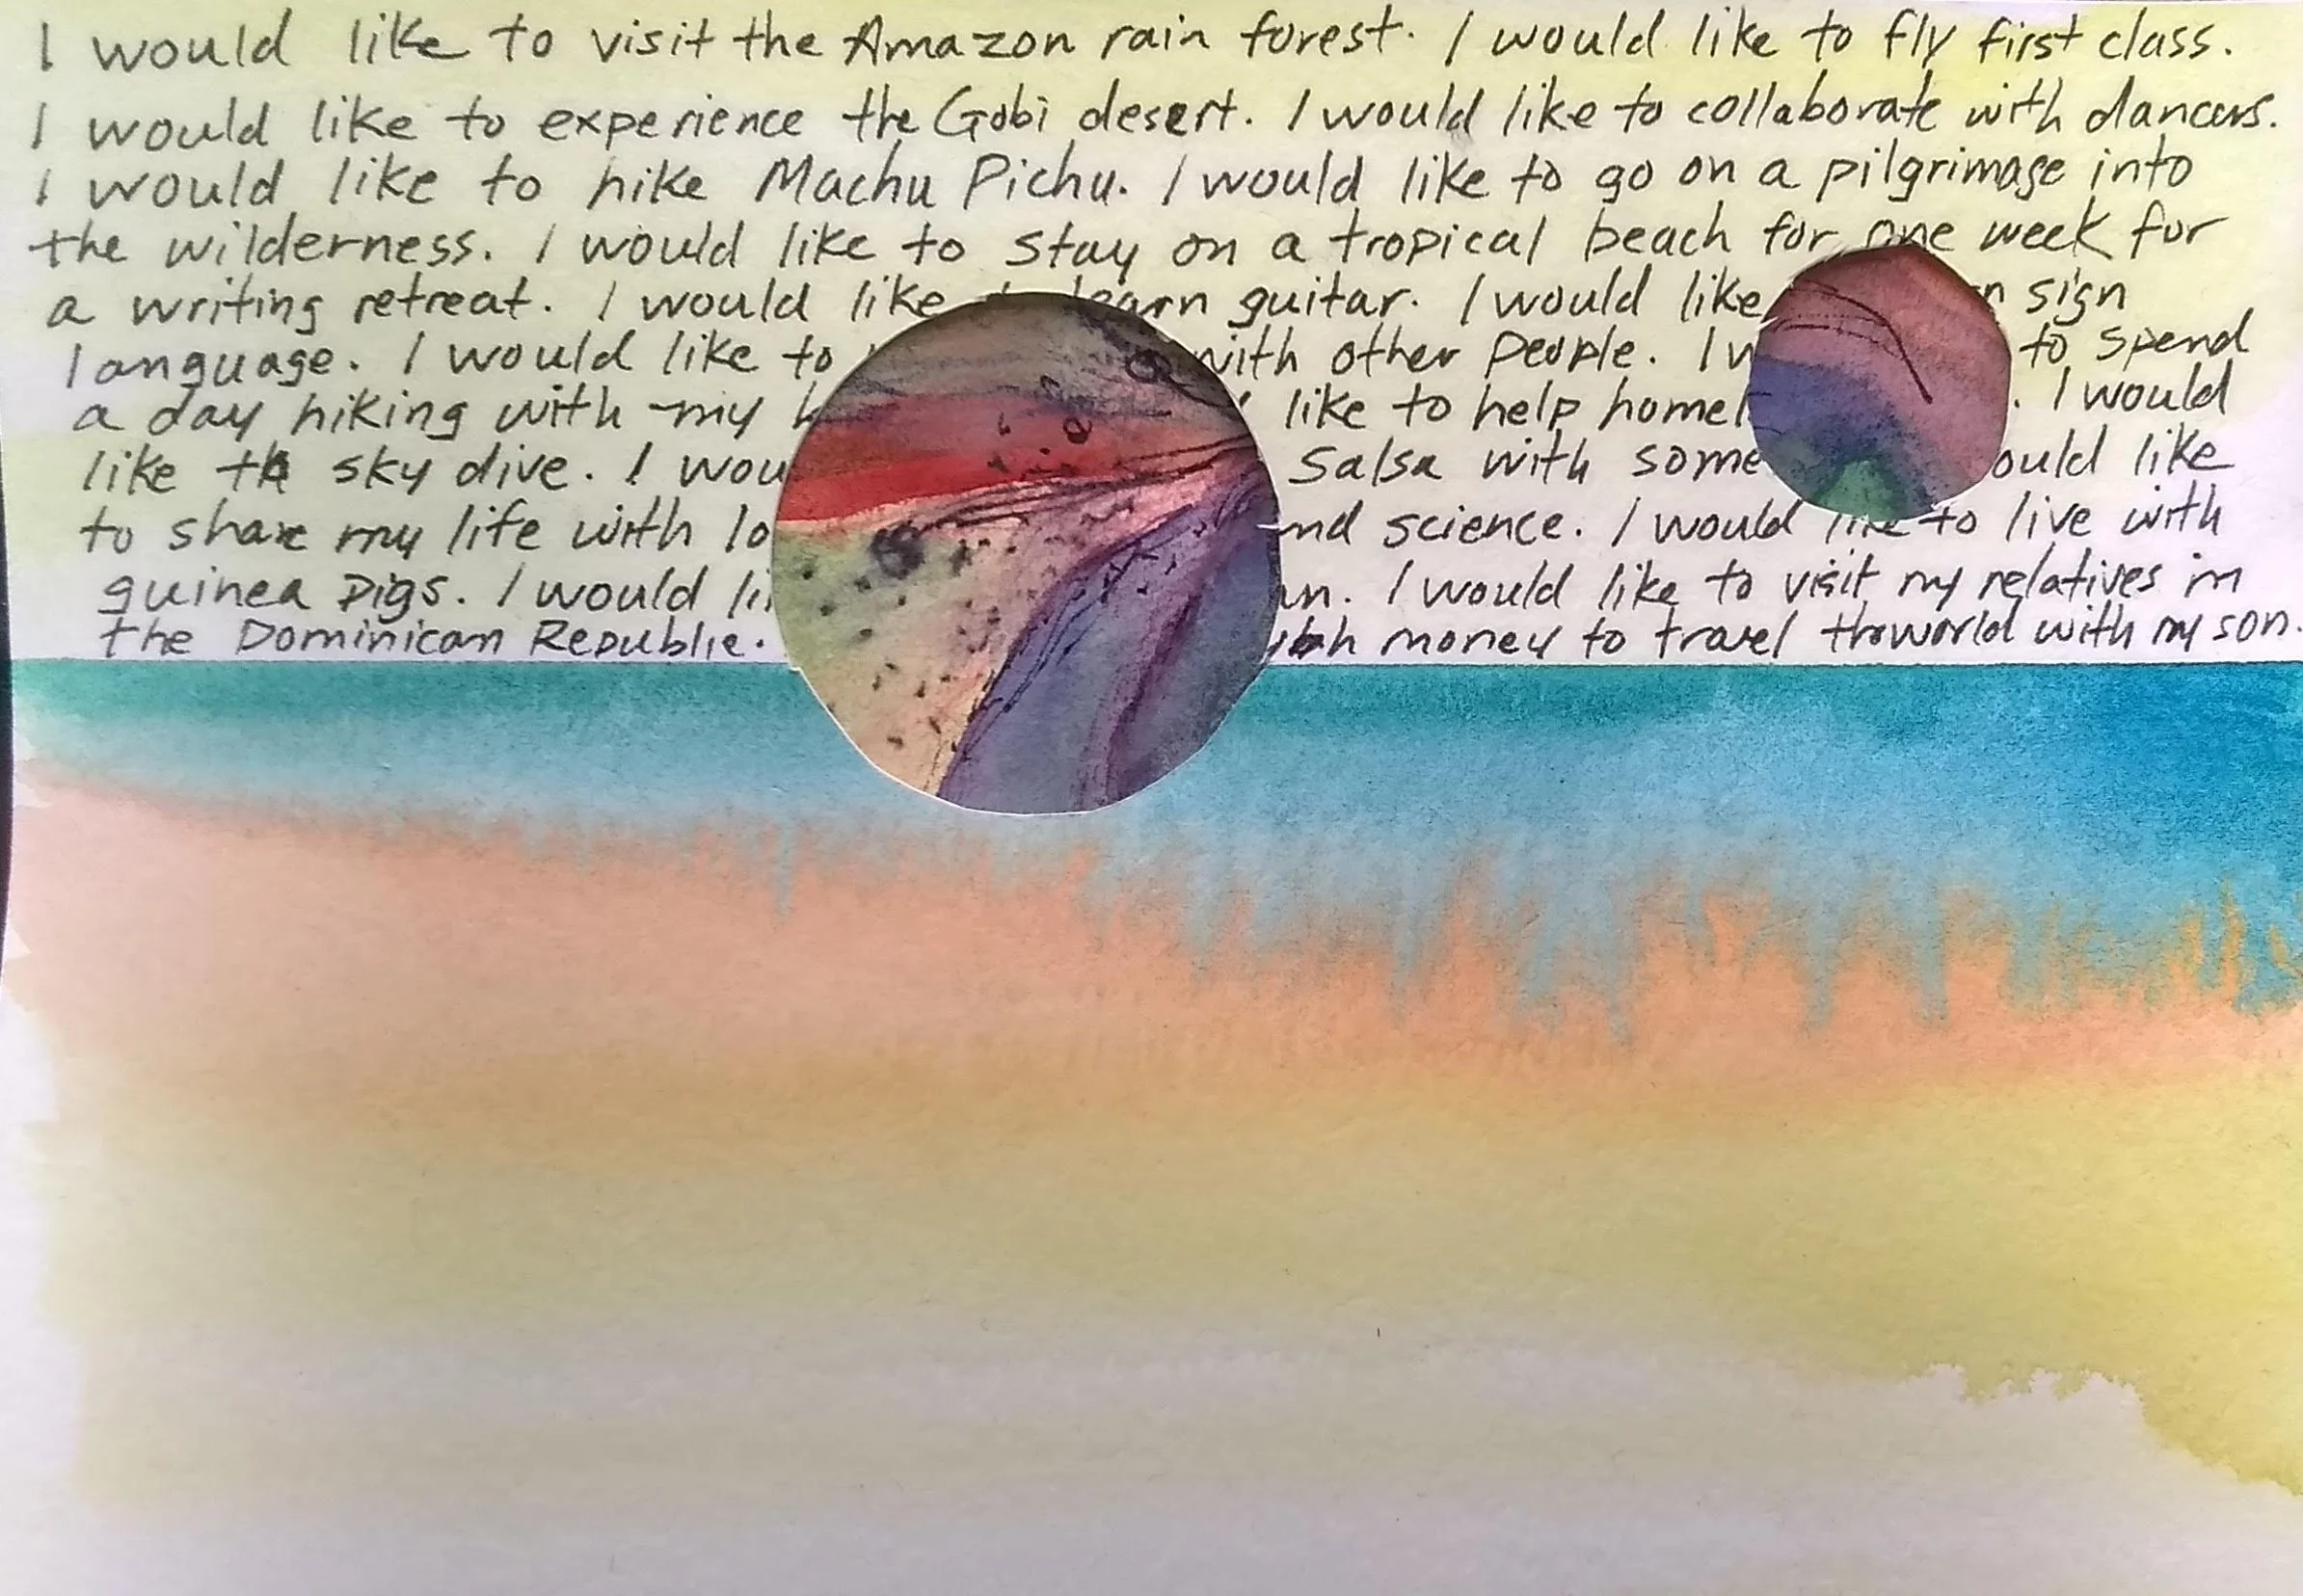 I would like to visit the Amazon rain forest. I would like to fly first class.
I would like to experience the Gobi desert. I would like to collaborate with dancers.
I would like to hike Machu Pichu. I would like to go on a pilgrimage into
the wilderness. I would like to stay on a tropical beach for one week for
a writing retreat. I would like learn guitar. I would like sign
language. I would like to with other people. I to spend
a day hiking with my like to help . I would
like sky dive. I Salsa with some like
to share my life with and science. I would like to live with
guinea pigs. I would . I would like to visit my relatives in
the Dominican Republic. money to travel the world with my son.